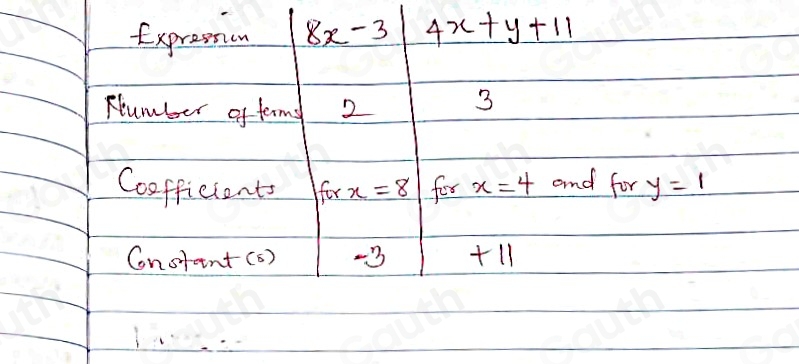 Expression 8x-3 4x+y+11
Number of terms 2 3
Coefficients for x=8 for x=4 and for y=1
Constant(s) -3 +11